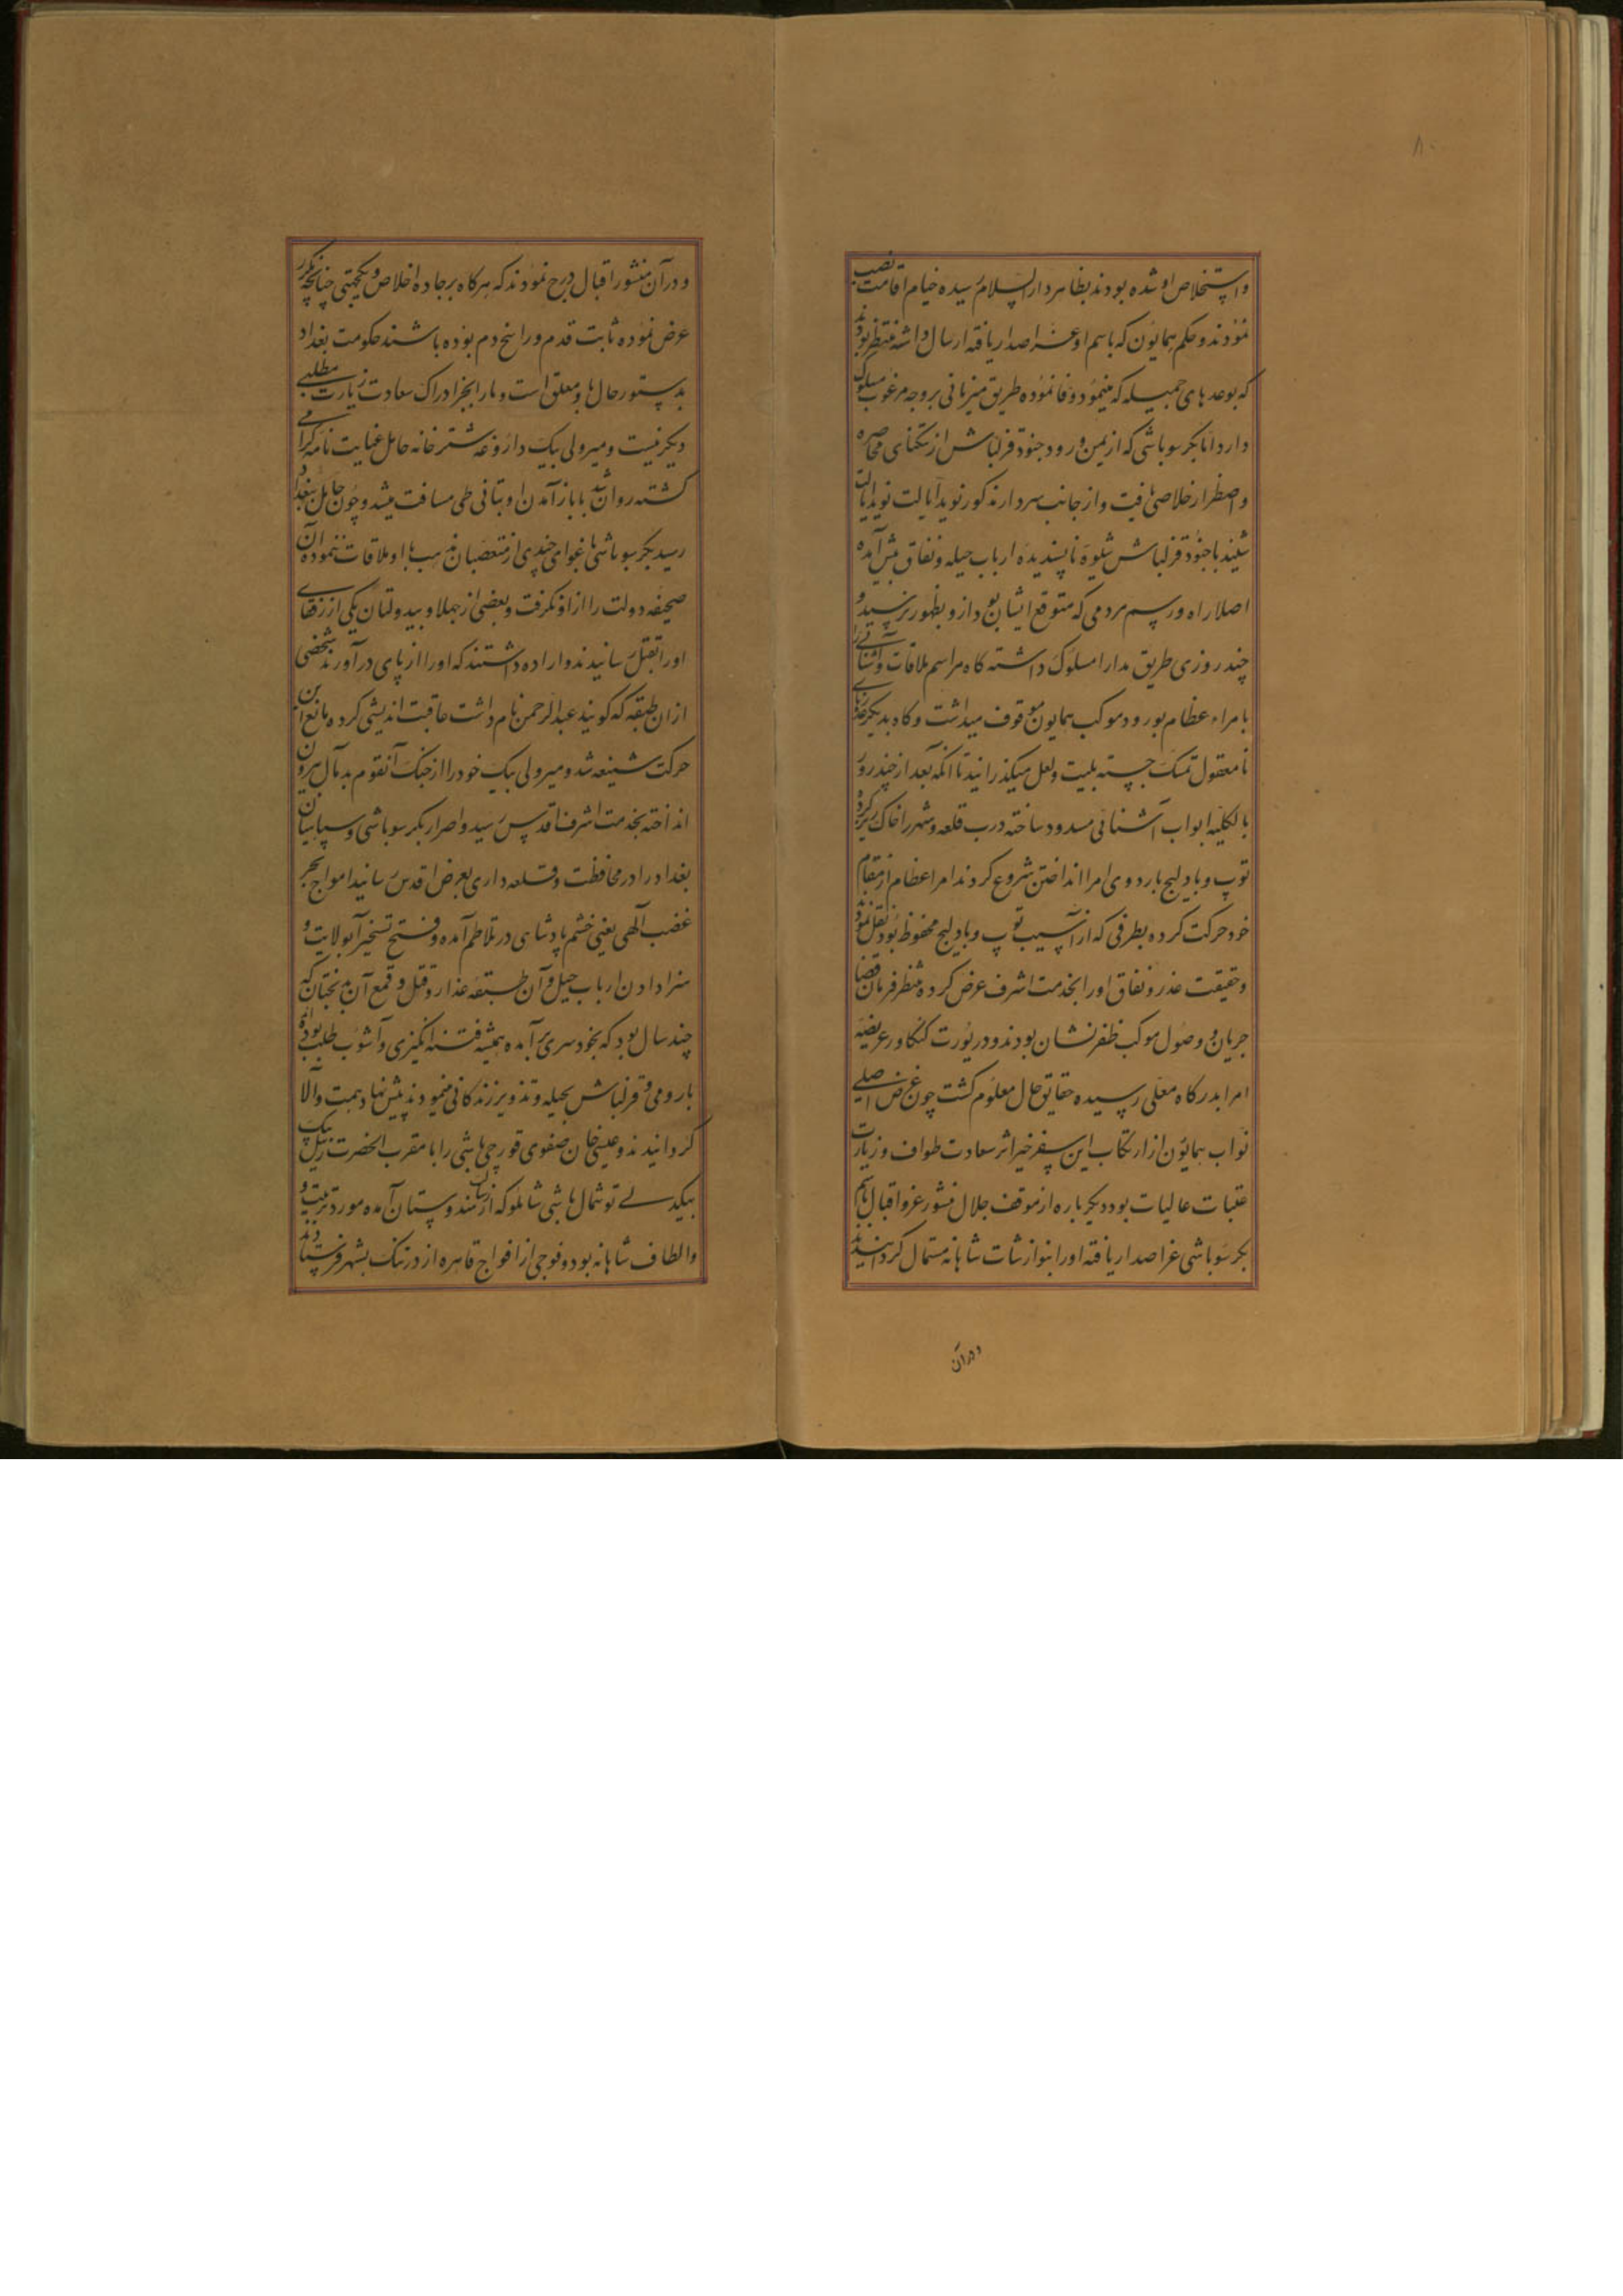 ۸۰
واستخلاص او شده بودند بظاهر دارالسلام رسیده خیام اقامت نصب
نمودند و حکم همایون که باسم او عز اصدار یافته ارسال داشته منتظر بودند
که بوعدهای جمیله که مینمود وفا نموده طریق میزبانی بر وجه مرغوب مسلوک
دارد اما بکر سوباشی که از یمن ورود جنود قزلباش از تنکنای محاصره
و اضطرار خلاصی یافت و از جانب سردار مذکور نوید ایالت نوید ایالت
شنید با جنود قزلباش شیوه ناپسندیده ارباب حیله و نفاق پیش آمده
اصلا راه و رسم مردمی که متوقع ایشان بود ازو بظهور نرسید و
چند روزی طریق مدارا مسلوک داشته کاه مراسم ملاقات و آشنائی را
بامراء عظام بورود موکب همایون موقوف میداشت و کاه بدیکر عذرهای
نامعقول تمسک جسته بلیت و لعل میکذرانید تا انکه بعد از چند روز
بالکلیه ابواب آشنائی مسدود ساخته درب قلعه و شهر را خاک ریز کرد
توپ و بادلیج باردوی امرا انداختن شروع کردند امراء عظام از مقام
خود حرکت کرده بطرفی که از آسیب توپ و بادلیج محفوظ بود نقل نمودند
و حقیقت غدر و نفاق او را بخدمت اشرف عرض کرده منتظر فرمان قضا
جریان و وصول موکب ظفرنشان بودند و در یورت کنکاور عریضه
امرا بدرکاه معلی رسیده حقایق حال معلوم کشت چون غرض اصلی
نواب همایون از ارتکاب این سفر خیر اثر سعادت طواف و زیارت
عتبات عالیات بود دیکر باره از موقف جلال منشور عز و اقبال باسم
بکر سوباشی عز اصدار یافته او را بنوازشات شاهانه مستمال کردانیدند
و در آن
و در آن منشور اقبال درج نمودند که هرکاه بر جاده اخلاص و یکجهتی چنانچه مکرر
عرض نموده ثابت قدم و راسخ دم بوده باشند حکومت بغداد
بدستور حال باو متعلق است و ما را بجز ادراک سعادت زیارت مطلبی
دیکر نیست و میر ولی بیک داروغه شترخانه حامل عنایت نامه کرامی
کشته روان شد تا باز آمدن او بتانی طی مسافت میشد و چون حامل ببغداد
رسید بکر سوباشی باغوای چندی از متعصبان مذهب با او ملاقات ننموده آن
صحیفه دولت را از او نکرفت و بعضی از جهلا و بیدولتان یکی از رفقای
او را بقتل رسانیدند و اراده داشتند که او را از پای درآورند شخصی
از ان طبقه که کویند عبدالرحمن نام داشت عاقبت اندیشی کرده مانع این
حرکت شنیعه شد و میر ولی بیک خود را از جنک آنقوم بدمآل بیرون
انداخته بخدمت اشرف اقدس رسید و اصرار بکر سوباشی و سپاهیان
بغداد را در محافظت و قلعه داری بعرض اقدس رسانید امواج بحر
غضب آلهی یعنی خشم پادشاهی در تلاطم آمده و فتح تسخیر آنولایت و
سزا دادن ارباب حیل و آن طبقه غدار و قتل و قمع آن بدبختان که
چند سال بود که بخودسری برآمده همیشه فتنه انکیزی و آشوب طلب بوده
با رومی و قزلباش بحیله و تذویر زندکانی مینمودند پیش نهاد همت والا
کردانیدند و عیسی خان صفوی قورچی باشی را با مقرب الحضرت زینل بیک
بیکدلی توشمال باشی شاملو که از رسالت هندوستان آمده مورد تربیت و
والطاف شاهانه بود و فوجی از افواج قاهره از درتنک بشهر فرستادند